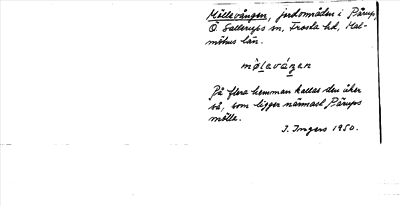 Möllevången, jordområden i Pårup,
Ö. Sallerups sn, Frosta hd, Mal-
möhus län.
mø̀leváŋen
På flera hemman kallas den åker
så, som ligger närmast Pårups
mölla.
I. Ingers 1950.